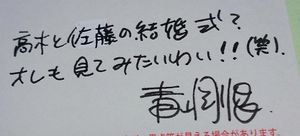 高木と佐藤の結婚式？
オレも見てみたいわい!!(笑).
青山剛昌